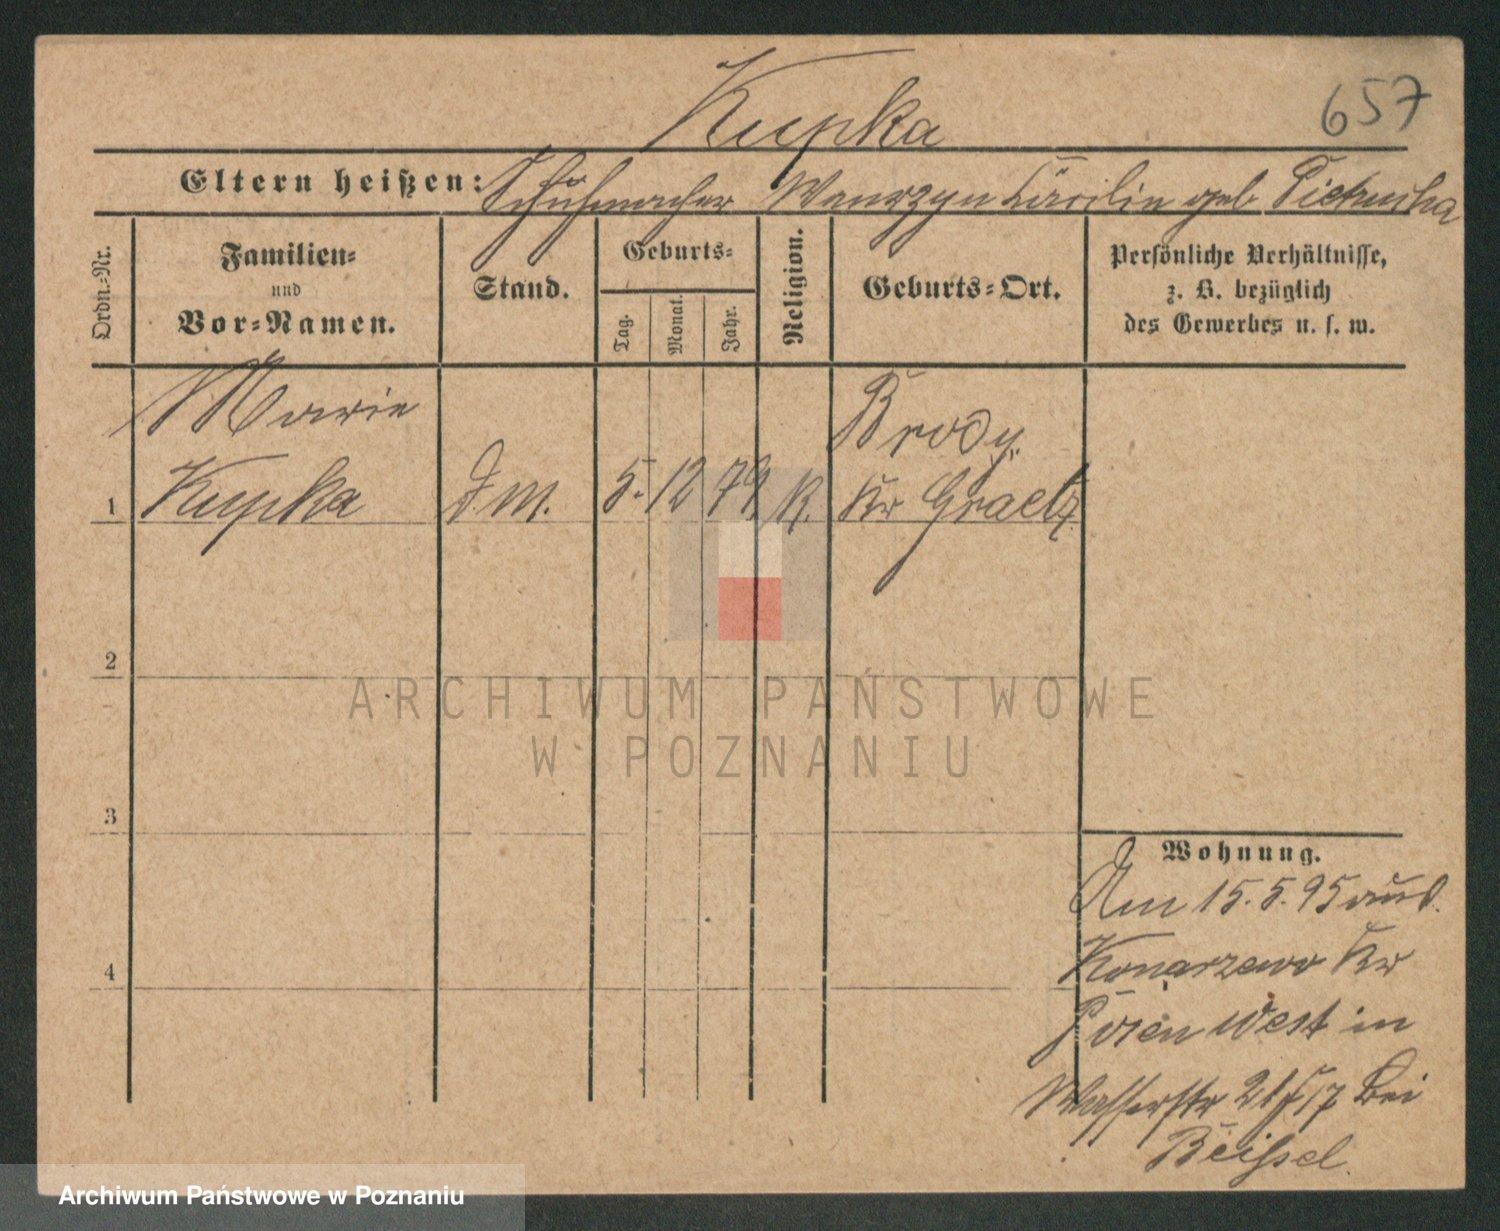 657
Kupka
Eltern heißen: Schuhmacher Wawrzyn Cäcilie geb Pietrucha
Ordn.-Nr.
Familien-
und
Vor-Namen.
Stand.
Geburts-
Tag.
Monat.
Jahr.
Religion.
Geburts-Ort.
Persönliche Verhältnisse,
z. B. bezüglich
des Gewerbes u. s. w.
Marie
Brody
1 Kupka d. M. 5. 12 79 K. Kr Graetz
2
3
4
ARCHIWUM PAŃSTWOWE
W POZNANIU
Wohnung.
Am 15.5.95 aus
Konarzewo Kr
Posen West in
Wasserstr bei
Beissel.
Archiwum Państwowe w Poznaniu